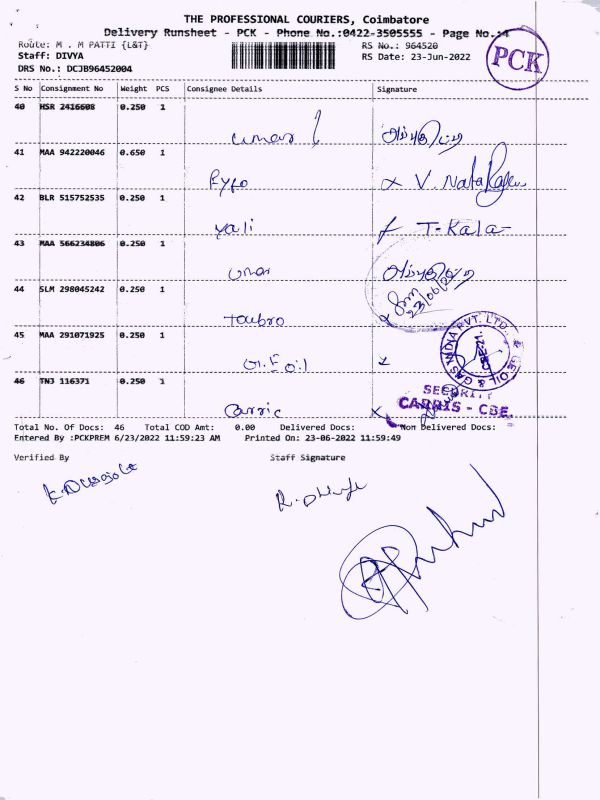 THE PROFESSIONAL COURIERS, Coimbatore
Delivery Runsheet - PCK - Phone No.:0422-3505555 - Page No.:4
Route: M . M PATTI {L&T}
RS No.: 964520
Staff: DIVYA
RS Date: 23-Jun-2022
DRS No.: DCJB96452004
PCK
S No Consignment No Weight PCS Consignee Details Signature
40 HSR 2416608 0.250 1
umar
41 MAA 942220046 0.650 1
V. Nata
42 BLR 515752535 0.250 1
yali T-Kala
43 MAA 566234806 0.250 1
umar
44 SLM 298045242 0.250 1
23/06/22
Toubro
45 MAA 291071925 0.250 1
G.E oil
GE OIL & GAS INDIA PVT. LTD.
46 TNJ 116371 0.250 1
SECURITY
CARRIS - CBE.
Carric
Total No. Of Docs: 46 Total COD Amt: 0.00 Delivered Docs: Non Delivered Docs:
Entered By :PCKPREM 6/23/2022 11:59:23 AM Printed On: 23-06-2022 11:59:49
Verified By Staff Signature